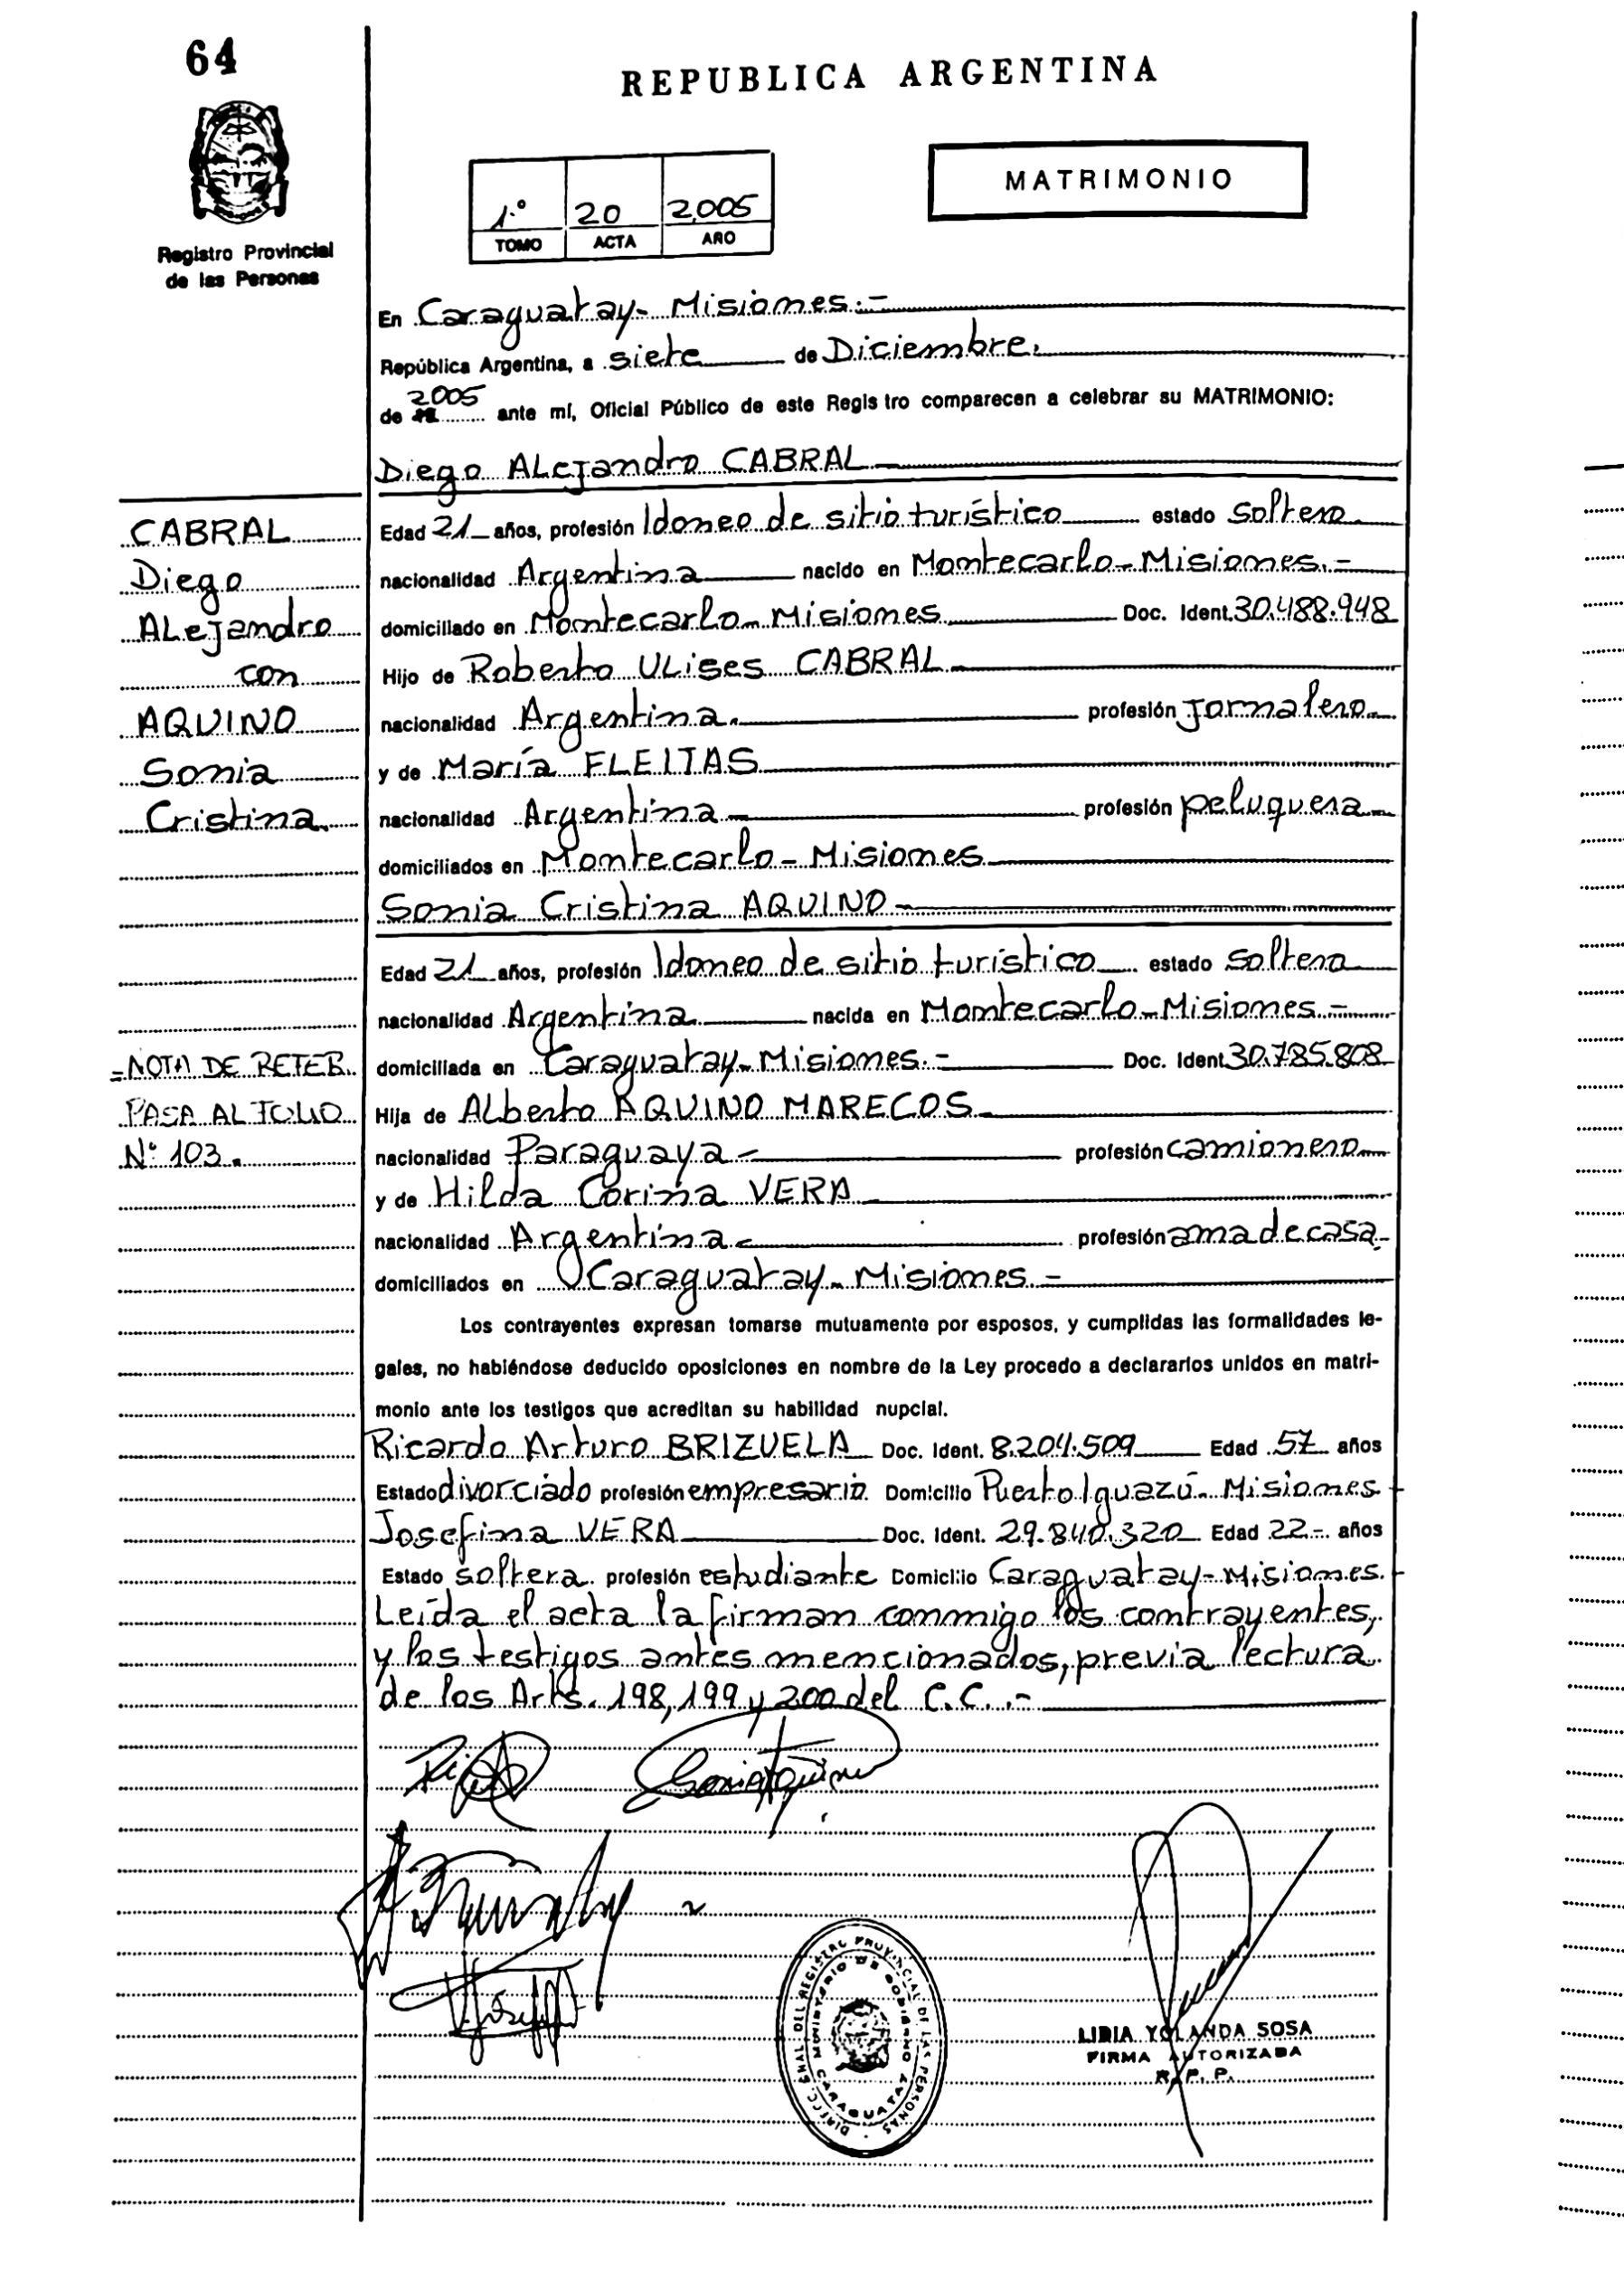 64
REPUBLICA ARGENTINA
MATRIMONIO
1.º 20 2005
TOMO ACTA AÑO
Registro Provincial
de las Personas
En Caraguatay- Misiones.-
República Argentina, a siete de Diciembre.
de 2005 ante mí, Oficial Público de este Regis tro comparecen a celebrar su MATRIMONIO:
Diego ALejandro CABRAL
CABRAL
Diego
ALejandro
con
AQUINO
Sonia
Cristina.
Edad 21 años, profesión Idoneo de sitio turístico estado soltero
nacionalidad Argentina nacido en Montecarlo-Misiones.-
domiciliado en Montecarlo-Misiones Doc. Ident. 30.488.948
Hijo de Roberto ULises CABRAL
nacionalidad Argentina. profesión jornalero
y de María FLEITAS
nacionalidad Argentina profesión peluquera
domiciliados en Montecarlo-Misiones
Sonia Cristina AQUINO
Edad 21 años, profesión Idoneo de sitio turístico estado soltera
nacionalidad Argentina nacida en Montecarlo-Misiones.-
domiciliada en Caraguatay-Misiones.- Doc. Ident. 30.785.808
Hija de ALberto AQUINO MARECOS
nacionalidad Paraguaya profesión camionero
y de Hilda Corina VERA
nacionalidad Argentina profesión ama de casa.
domiciliados en Caraguatay-Misiones.-
-NOTA DE REFER.
PASA AL FOLIO
Nº 103.
Los contrayentes expresan tomarse mutuamente por esposos, y cumplidas las formalidades le-
gales, no habiéndose deducido oposiciones en nombre de la Ley procedo a declararlos unidos en matri-
monio ante los testigos que acreditan su habilidad nupcial.
Ricardo Arturo BRIZUELA Doc. Ident. 8.204.509 Edad 57 años
Estado divorciado profesión empresario Domicilio Puerto Iguazú-Misiones-
Josefina VERA Doc. Ident. 29.840.320 Edad 22- años
Estado soltera profesión estudiante Domicilio Caraguatay-Misiones.-
Leída el acta la firman conmigo los contrayentes,
y los testigos antes mencionados, previa lectura
de los Arts. 198, 199 y 200 del C.C..-
DIRECC. GRAL DEL REGISTRO PROVINCIAL DE LAS PERSONAS
MINISTERIO DE GOBIERNO
CARAGUATAY
LIDIA YOLANDA SOSA
FIRMA AUTORIZADA
R. P. P.